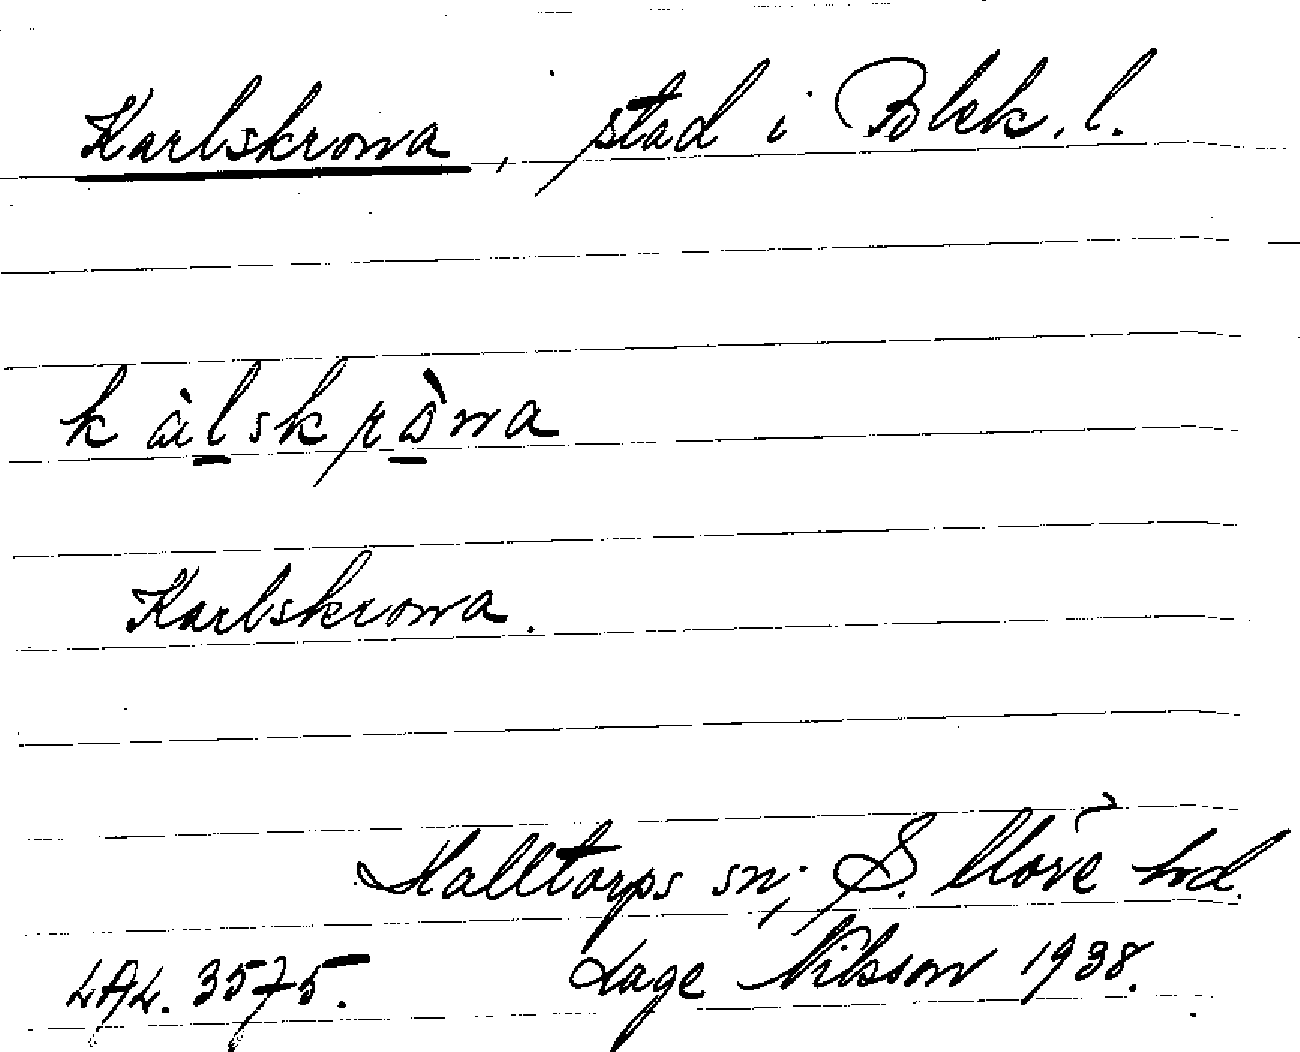 Karlskrona, stad i Blek. l.
kàlskròna
Karlskrona.
Halltorps sn; S. Möre hd.
LAL. 3575. Lage Nilsson 1938.